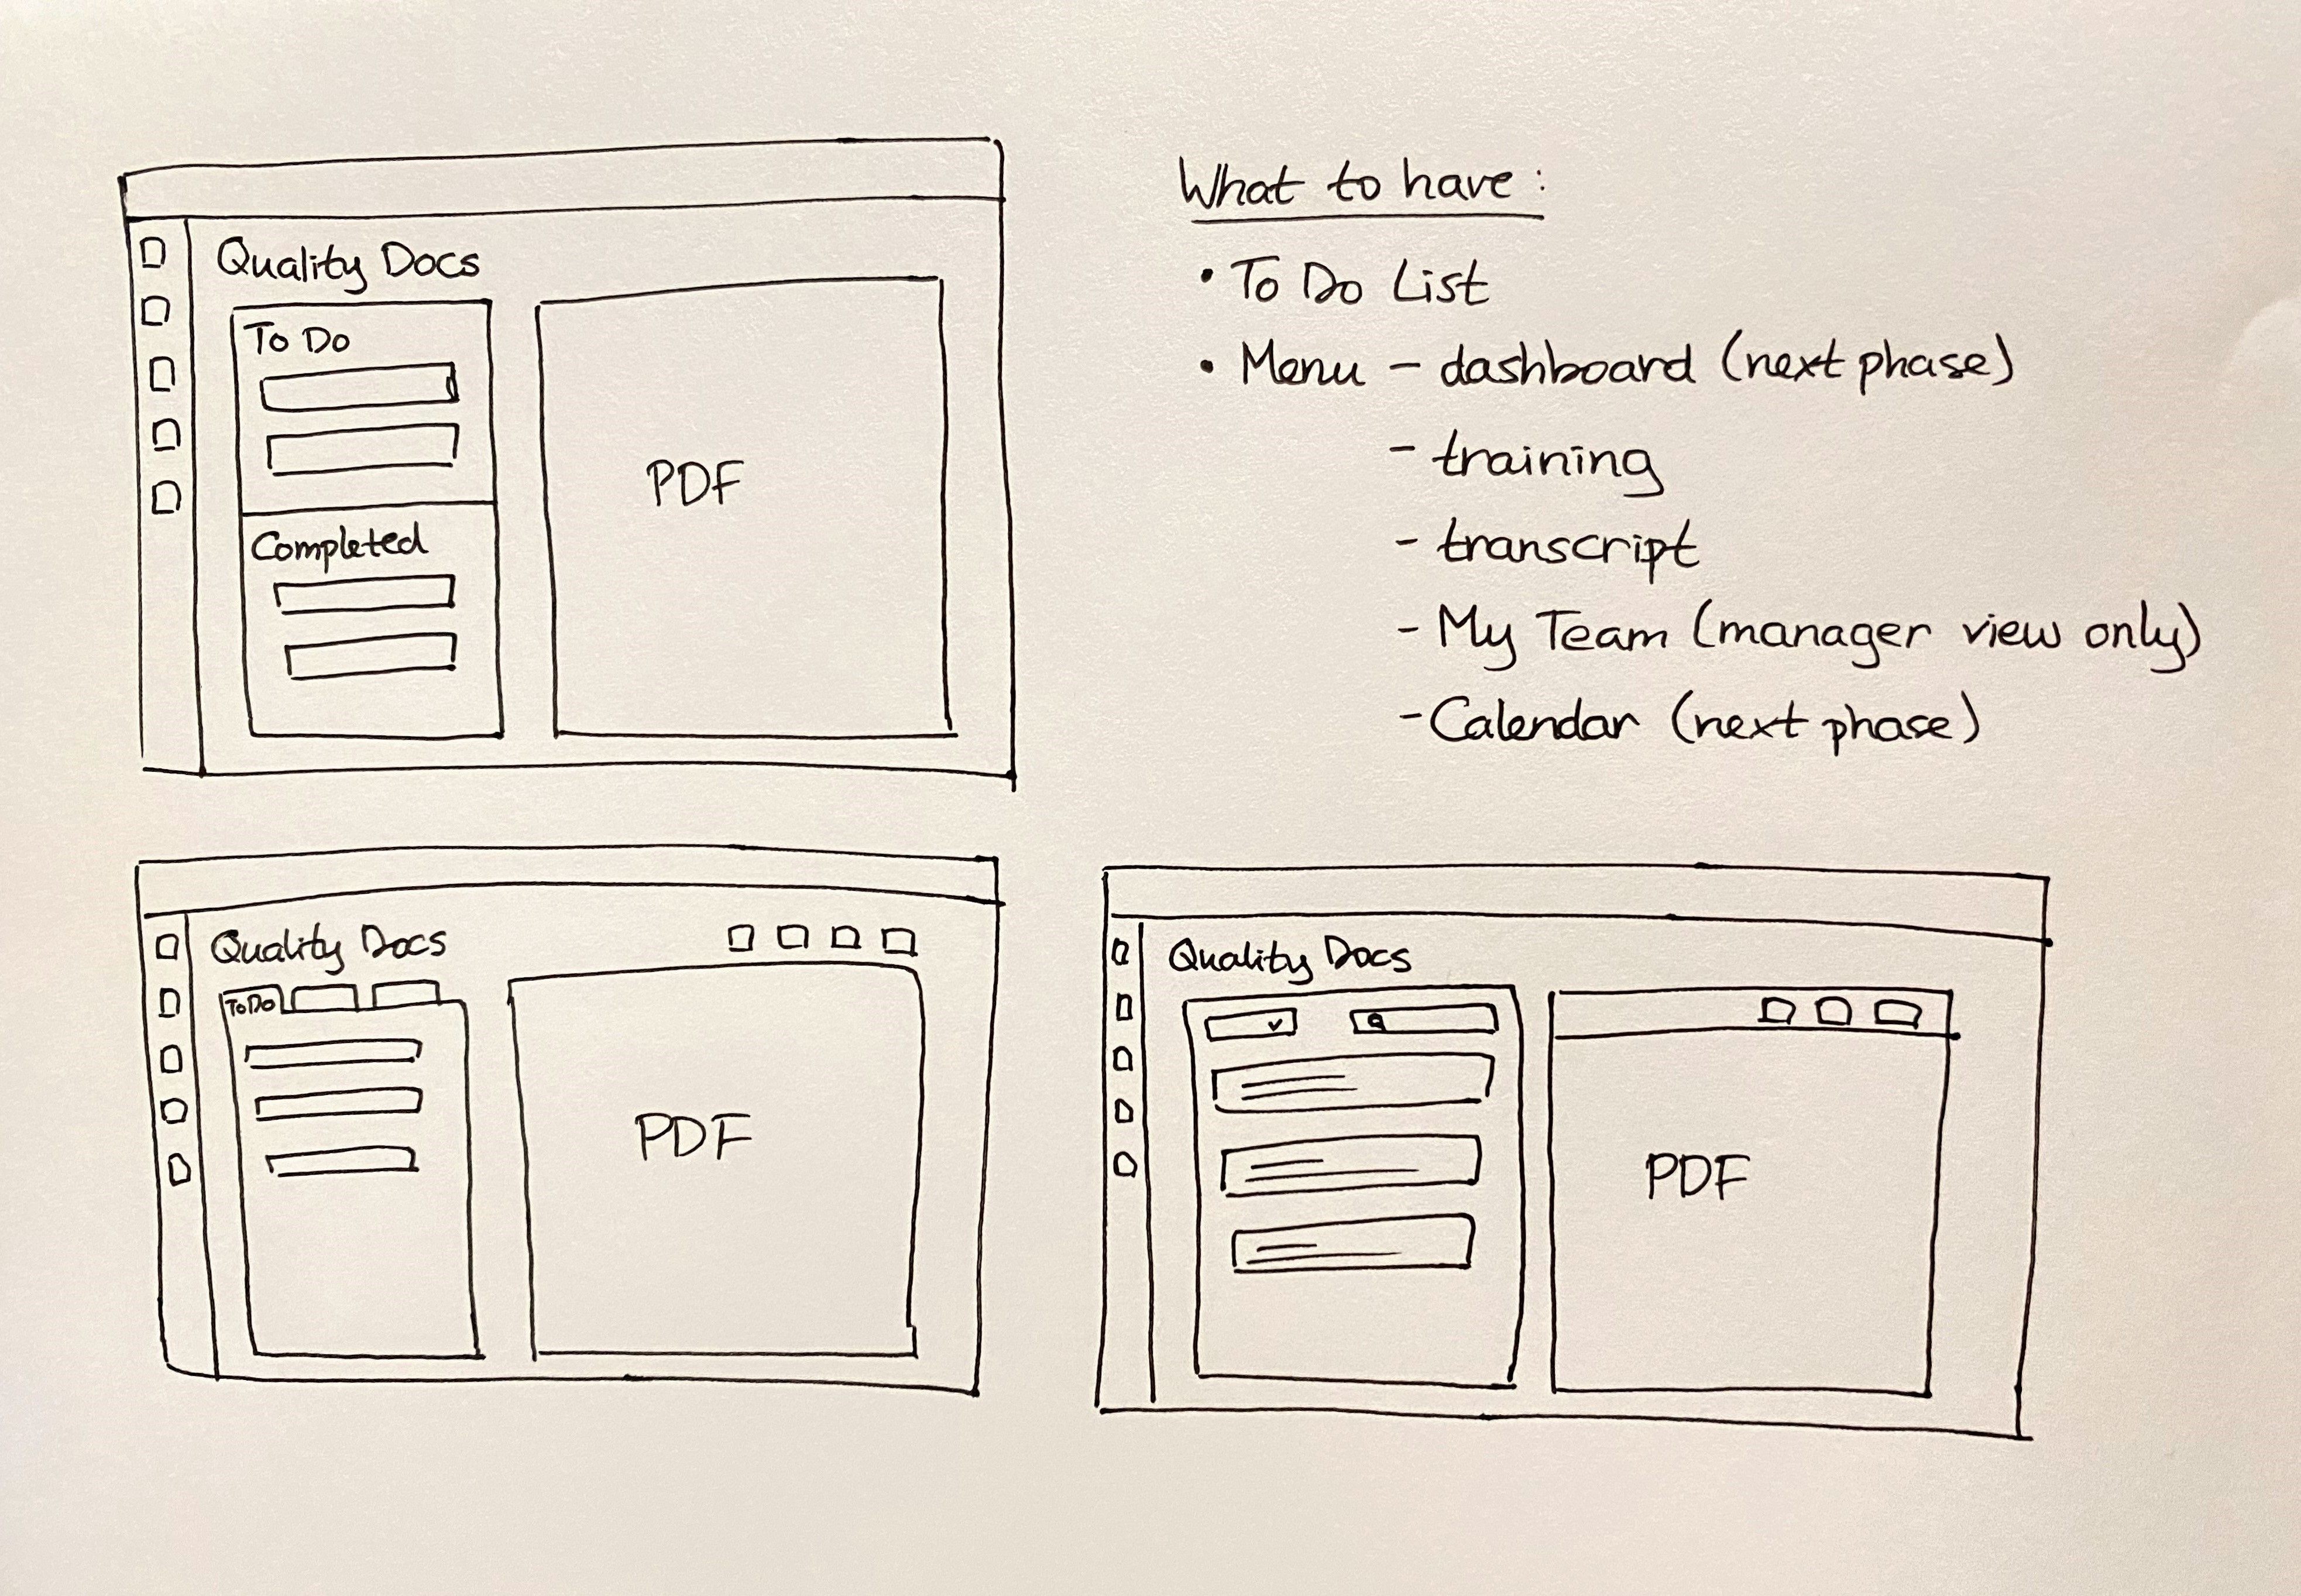 Quality Docs
To Do
Completed
PDF
What to have :
• To Do List
• Menu - dashboard (next phase)
- training
- transcript
- My Team (manager view only)
- Calendar (next phase)
Quality Docs
To Do
PDF
Quality Docs
PDF